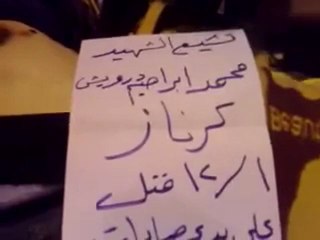 تشييع الشهيد
محمد ابراهيم درويش
كرناز
١٢/١ قتل
على يد عصابات
Beau